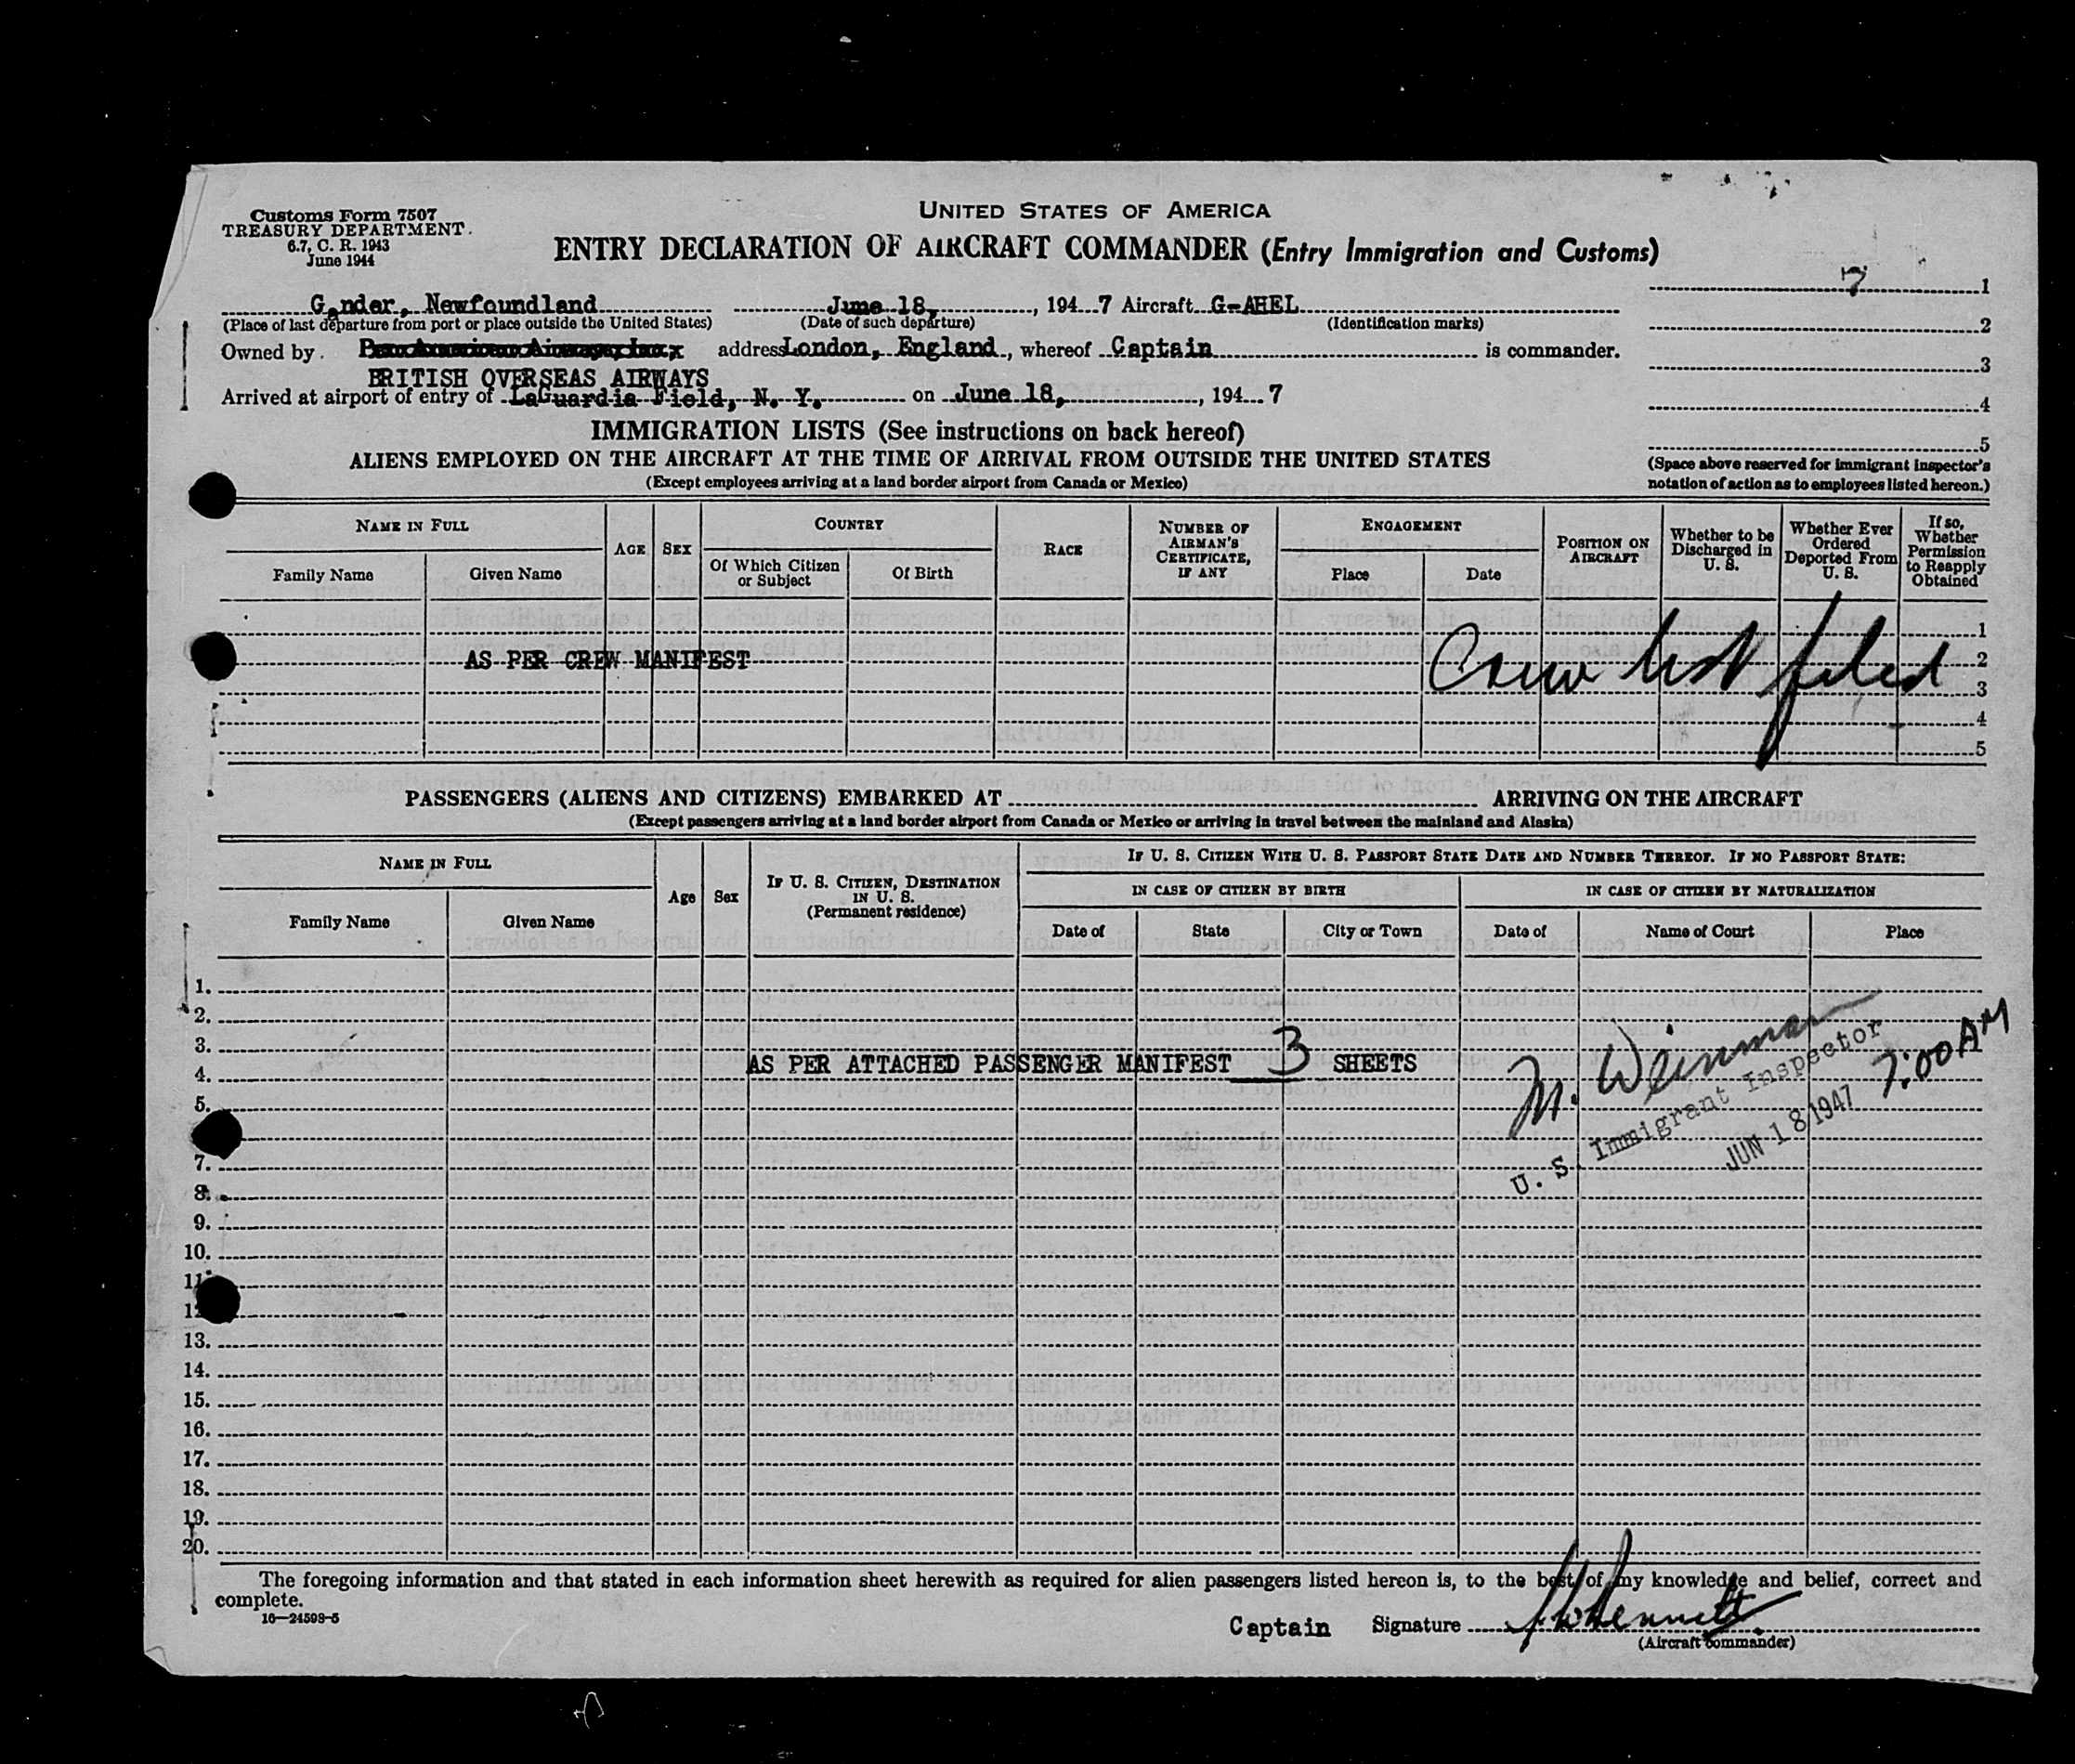 Customs Form 7507
TREASURY DEPARTMENT
6.7, C. R. 1943
June 1944
UNITED STATES OF AMERICA
ENTRY DECLARATION OF AIRCRAFT COMMANDER (Entry Immigration and Customs)
7 1
Gander, Newfoundland June 18, , 194 7 Aircraft G-AHEL
(Place of last departure from port or place outside the United States) (Date of such departure) (Identification marks)
2
Owned by Pan American Airways, Inc. address London, England , whereof Captain is commander.
3
BRITISH OVERSEAS AIRWAYS
Arrived at airport of entry of LaGuardia Field, N. Y. on June 18, , 194 7
4
IMMIGRATION LISTS (See instructions on back hereof)
5
ALIENS EMPLOYED ON THE AIRCRAFT AT THE TIME OF ARRIVAL FROM OUTSIDE THE UNITED STATES
(Except employees arriving at a land border airport from Canada or Mexico)
(Space above reserved for immigrant inspector's
notation of action as to employees listed hereon.)
NAME IN FULL AGE SEX COUNTRY RACE NUMBER OF AIRMAN'S CERTIFICATE, IF ANY ENGAGEMENT POSITION ON AIRCRAFT Whether to be Discharged in U. S. Whether Ever Ordered Deported From U. S. If so, Whether Permission to Reapply Obtained
Family Name Given Name Of Which Citizen or Subject Of Birth Place Date
1
AS PER CREW MANIFEST Crew list filed 2
3
4
5
PASSENGERS (ALIENS AND CITIZENS) EMBARKED AT ARRIVING ON THE AIRCRAFT
(Except passengers arriving at a land border airport from Canada or Mexico or arriving in travel between the mainland and Alaska)
NAME IN FULL Age Sex IF U. S. CITIZEN, DESTINATION IN U. S. (Permanent residence) IF U. S. CITIZEN WITH U. S. PASSPORT STATE DATE AND NUMBER THEREOF. IF NO PASSPORT STATE:
IN CASE OF CITIZEN BY BIRTH IN CASE OF CITIZEN BY NATURALIZATION
Family Name Given Name Date of State City or Town Date of Name of Court Place
1.
2.
3.
AS PER ATTACHED PASSENGER MANIFEST 3 SHEETS
4.
M. Weinman
U. S. Immigrant Inspector
JUN 18 1947 7:00 AM
5.
7.
8.
9.
10.
11.
12
13.
14.
15.
16.
17.
18.
19.
20.
The foregoing information and that stated in each information sheet herewith as required for alien passengers listed hereon is, to the best of my knowledge and belief, correct and
complete.
16—24598-5
Captain Signature
(Aircraft commander)